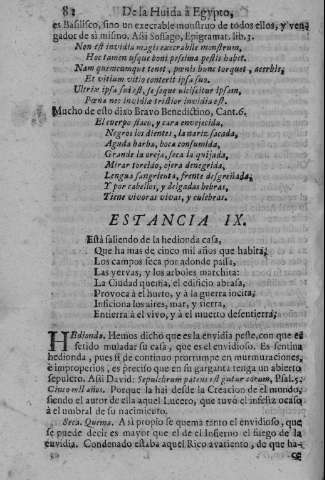 82 De la Huida à Egypto,
es Basilisco, sino un execrable monstruo de todos ellos, y ven-
gador de si mismo. Assi Sosiago, Epigramat. lib. 3.
Non est invidia magis execrabile monstrum,
Hoc tamen usque boni pessima pestis habet.
Nam quemcumque tenet, pœnis hunc torquet, acerbis;
Et vitium vitio conterit ipsa suo.
Ultrix ipsa suà est, se seque ulciscitur ipsam,
Pœna nos invidiæ tristior invidia est.
Mucho de esto dixo Bravo Benedictino, Cant. 6.
El cuerpo flaco, y cara envejecida,
Negros los dientes, la nariz sacada,
Aguda barba, boca consumida,
Grande la oreja, seca la quijada,
Mirar torcido, ojera denegrida,
Lengua sangrienta, frente desgreñada,
Y por cabellos, y delgadas hebras,
Tiene vivoras vivas, y culebras.
ESTANCIA IX.
Està saliendo de la hedionda casa,
Que ha mas de cinco mil años que habita;
Los campos seca por adonde passa,
Las yervas, y los arboles marchita:
La Ciudad quema, el edificio abrasa,
Provoca à el hurto, y à la guerra incita;
Inficiona los aires, mar, y tierra,
Entierra à el vivo, y à el muerto desentierra;
Hedionda. Hemos dicho que es la envidia peste, con que es
fetido muladar su casa, que es el envidioso. Es sentina
hedionda, pues si de continuo prorrumpe en murmuraciones,
è improperios, es preciso que en su garganta tenga un abierto
sepulcro. Assi David: Sepulchrum patens est gutur eorum, Psal. 5.
Cinco mil años. Porque la hai desde la Creacion de el mundo,
siendo el autor de ella aquel Lucero, que tuvo el infeliz ocaso
à el umbral de su nacimiento.
Seca. Quema. A si proprio se quema tanto el envidioso, que
se puede decir es mayor que el de el Infierno el fuego de la
envidia. Condenado estaba aquel Rico avariento, de que ha-